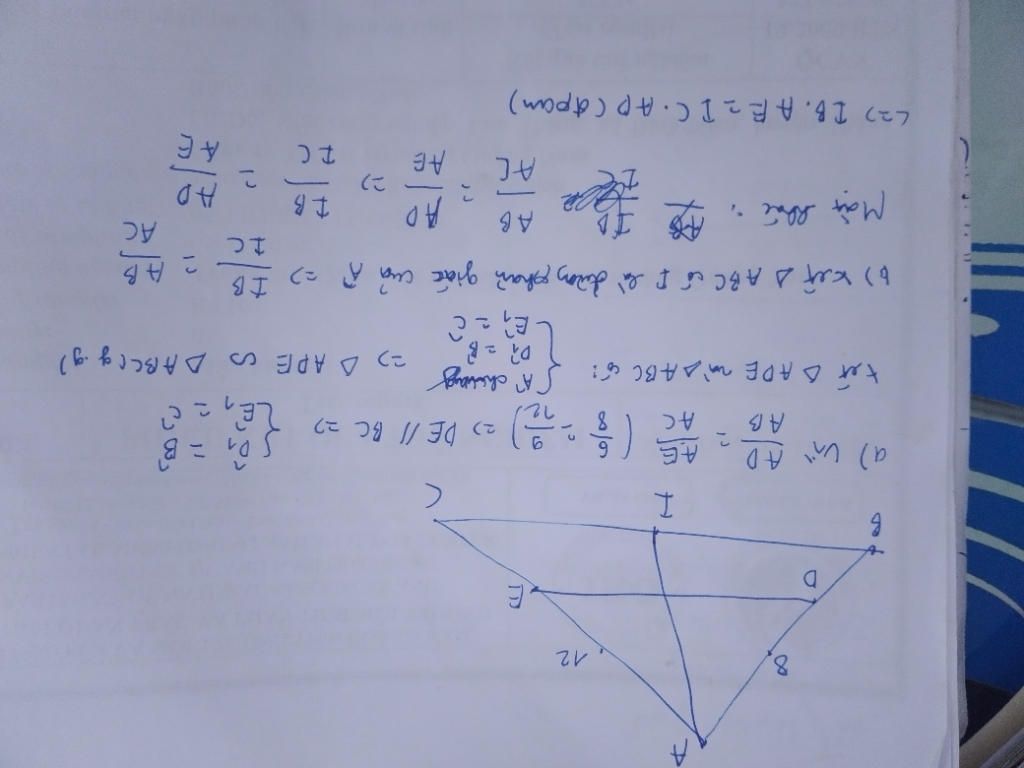 A
8
12
D
E
B
I
C
a) Vì AD/AB = AE/AC (6/8 = 9/12) => DE // BC => { D̂₁ = B̂ Ê₁ = Ĉ
Xét △ ADE và △ABC có: { Â chung D̂₁ = B̂ Ê₁ = Ĉ => △ ADE ∽ △ ABC (g.g)
b) Xét △ ABC có I là đường phân giác của Â => IB/IC = AB/AC
Mặt khác: AB/AC = AD/AE => IB/IC = AD/AE
<=> IB. AE = IC. AD (đpcm)